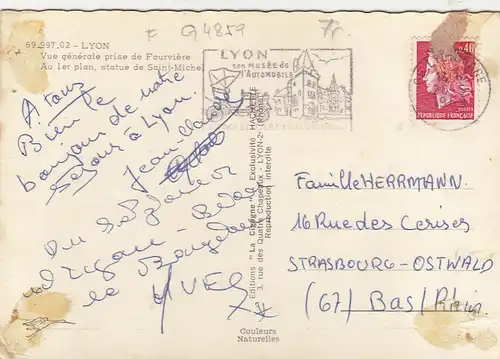 F G4859
69.997.02 - LYON
Vue générale prise de Fourvière
Au 1er plan, statue de Saint-Michel
LYON
son MUSÉE de
l'AUTOMOBILE
0,40
REPUBLIQUE FRANÇAISE
A tous
Bien le
bonjour de notre
séjour à Lyon.
Jean-Claude
Un bonjour
Lyon
YVES
Editions "La Cigogne" - Exclusivité HACHETTE
3, rue des Quatre Chapeaux - LYON-2e (Rhône)
Reproduction interdite
Couleurs
Naturelles
Famille HERRMANN.
16 Rue des Cerises
STRASBOURG-OSTWALD
(67) Bas/Rhin.